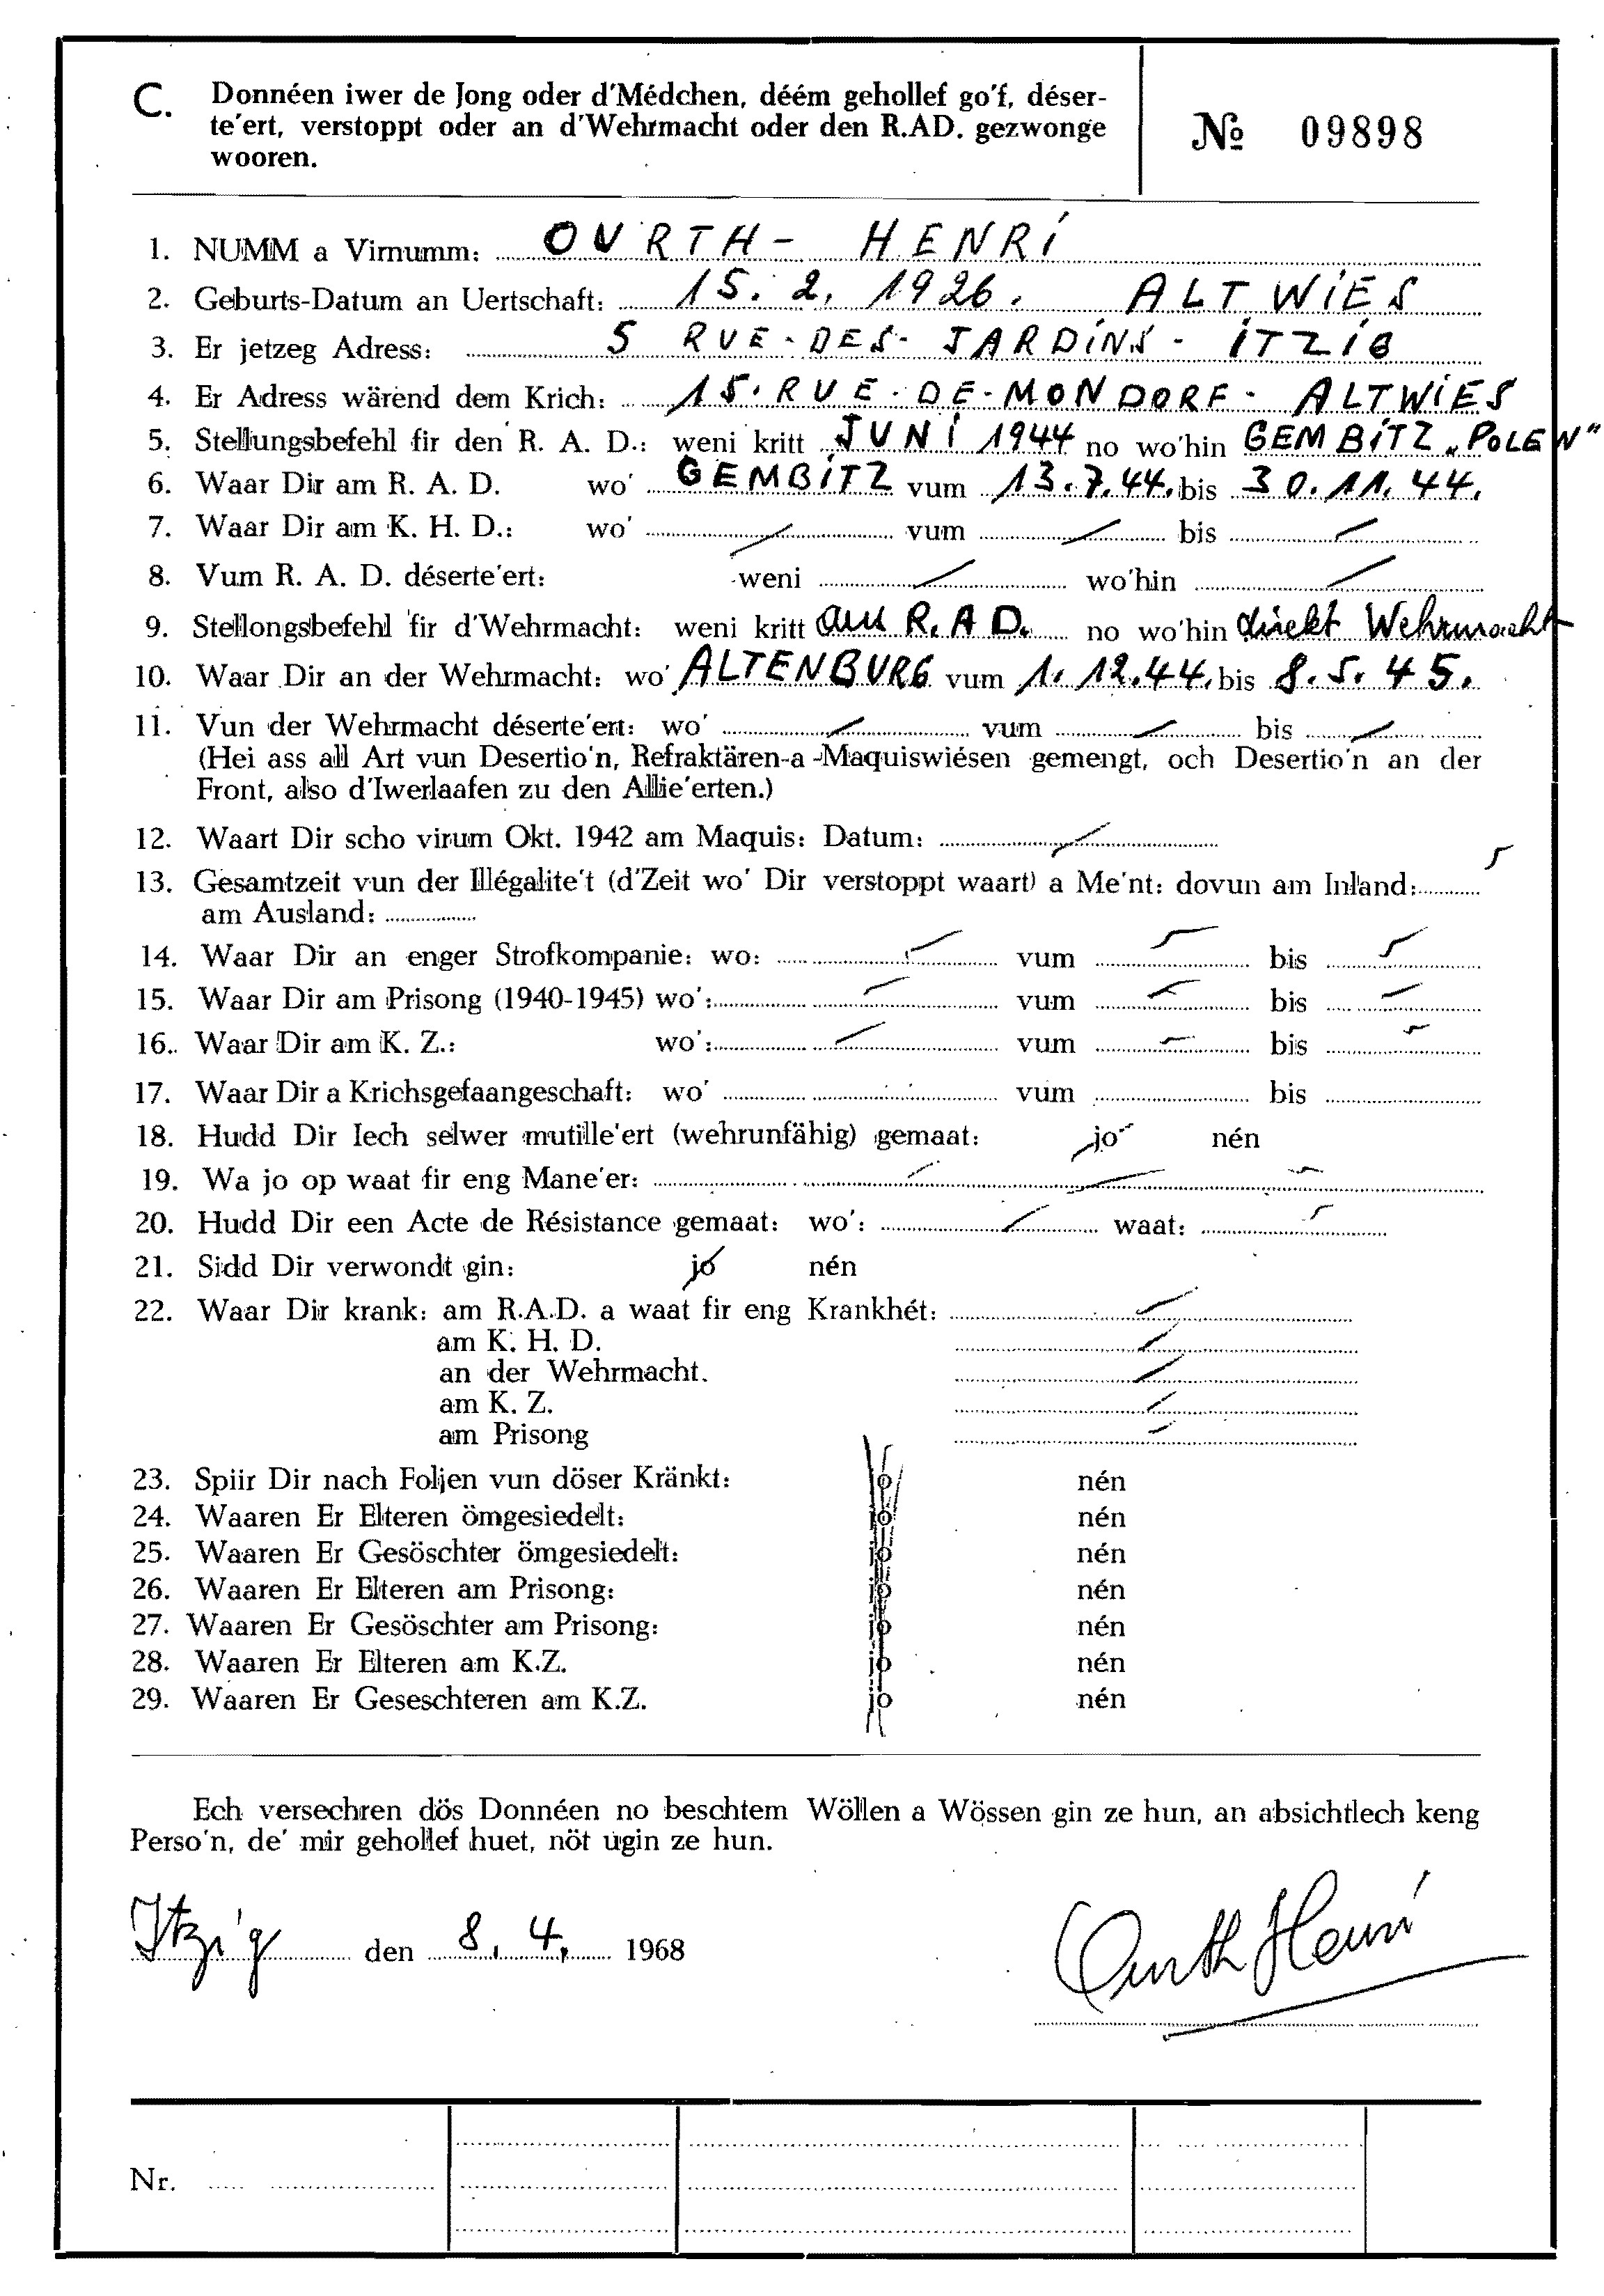 C. Donnéen iwer de Jong oder d'Médchen, déém gehollef go'f, déser-
te'ert, verstoppt oder an d'Wehrmacht oder den R.AD. gezwonge
wooren.
№ 09898
1. NUMM a Virnumm: OURTH - HENRI
2. Geburts-Datum an Uertschaft: 15. 2. 1926. ALTWIES
3. Er jetzeg Adress: 5 RUE-DES-JARDINS - ITZIG
4. Er Adress wärend dem Krich: 15. RUE-DE-MONDORF - ALTWIES
5. Stellungsbefehl fir den R. A. D.: weni kritt JUNI 1944 no wo'hin GEMBITZ „POLEN"
6. Waar Dir am R. A. D. wo' GEMBITZ vum 13.7.44. bis 30.11.44.
7. Waar Dir am K. H. D.: wo' / vum / bis /
8. Vum R. A. D. déserte'ert: weni / wo'hin /
9. Stellongsbefehl fir d'Wehrmacht: weni kritt R.A.D. no wo'hin direkt Wehrmacht
10. Waar Dir an der Wehrmacht: wo' ALTENBURG vum 1.12.44. bis 8.5.45.
11. Vun der Wehrmacht déserte'ert: wo' / vum / bis /
(Hei ass all Art vun Desertio'n, Refraktären-a -Maquiswiésen gemengt, och Desertio'n an der
Front, also d'Iwerlaafen zu den Allie'erten.)
12. Waart Dir scho virum Okt. 1942 am Maquis: Datum: /
13. Gesamtzeit vun der Illégalite't (d'Zeit wo' Dir verstoppt waart) a Me'nt: dovun am Inland:
am Ausland:
14. Waar Dir an enger Strofkompanie: wo: / vum / bis /
15. Waar Dir am Prisong (1940-1945) wo': / vum / bis /
16. Waar Dir am K. Z.: wo': / vum / bis /
17. Waar Dir a Krichsgefaangeschaft: wo' vum bis
18. Hudd Dir Iech selwer mutille'ert (wehrunfähig) gemaat: jo nén
19. Wa jo op waat fir eng Mane'er: /
20. Hudd Dir een Acte de Résistance gemaat: wo': / waat: /
21. Sidd Dir verwondt gin: jo nén
22. Waar Dir krank: am R.A.D. a waat fir eng Krankhét: /
am K. H. D. /
an der Wehrmacht. /
am K. Z. /
am Prisong /
23. Spiir Dir nach Foljen vun döser Kränkt: jo nén
24. Waaren Er Elteren ömgesiedelt: jo nén
25. Waaren Er Gesöschter ömgesiedelt: jo nén
26. Waaren Er Elteren am Prisong: jo nén
27. Waaren Er Gesöschter am Prisong: jo nén
28. Waaren Er Elteren am K.Z. jo nén
29. Waaren Er Geseschteren am K.Z. jo nén
Ech versechren dös Donnéen no beschtem Wöllen a Wössen gin ze hun, an absichtlech keng
Perso'n, de' mir gehollef huet, nöt ugin ze hun.
Itzig den 8. 4. 1968
Ourth Henri
Nr.